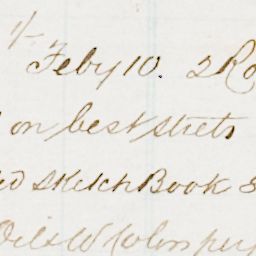 1/-
Feby 10. 2 Ro
on best strets
ed Sketch Book 3
Oils W Colors per